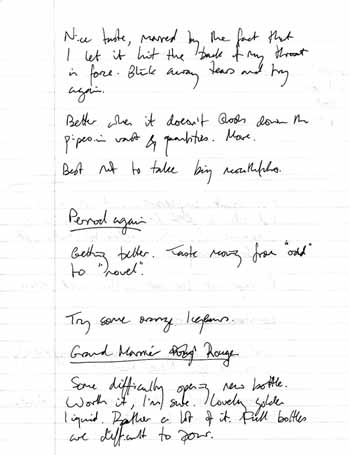 Nice taste, marred by the fact that
I let it hit the back of my throat
in force. Blink away tears and try
again.
Better when it doesn't down the
pipes in vast quantities. More.
Best not to take big mouthfuls.
Pernod again
Getting better. Taste moving from "odd"
to "novel".
Try some orange
Grand Marnier Rouge
Some difficulty opening new bottle.
Worth it, I'm sure. Lovely golden
liquid. Rather a lot of it. Full bottles
are difficult to pour.